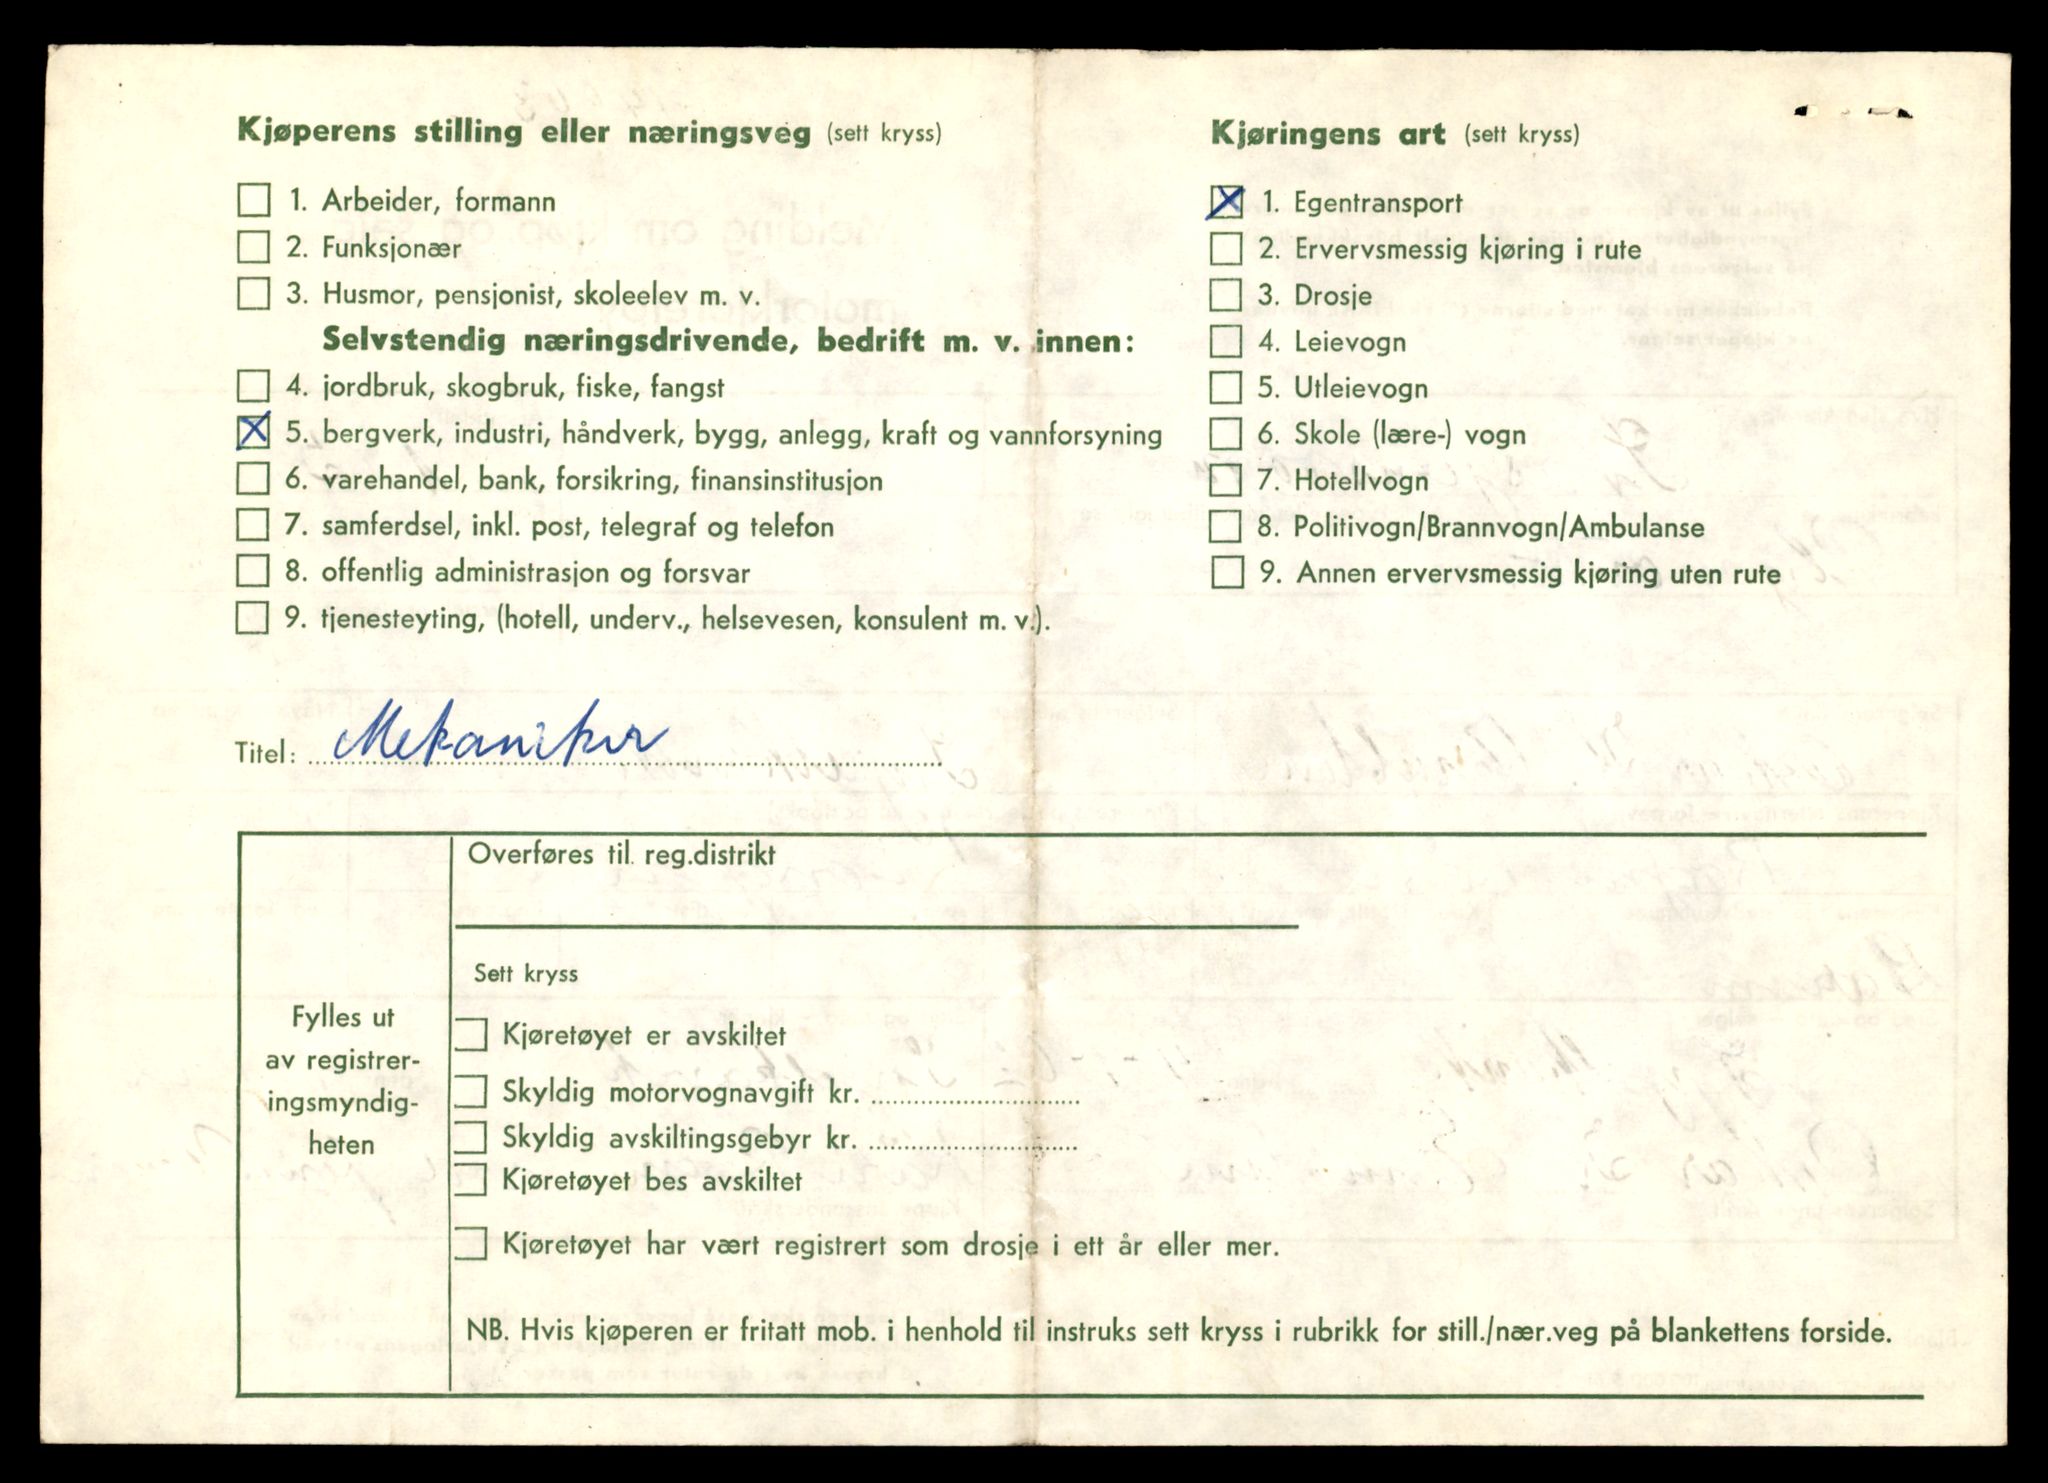 Kjøperens stilling eller næringsveg (sett kryss)
1. Arbeider, formann
2. Funksjonær
3. Husmor, pensjonist, skoleelev m. v.
Selvstendig næringsdrivende, bedrift m. v. innen:
4. jordbruk, skogbruk, fiske, fangst
5. bergverk, industri, håndverk, bygg, anlegg, kraft og vannforsyning
6. varehandel, bank, forsikring, finansinstitusjon
7. samferdsel, inkl. post, telegraf og telefon
8. offentlig administrasjon og forsvar
9. tjenesteyting, (hotell, underv., helsevesen, konsulent m. v.).
Titel: Mekaniker
Kjøringens art (sett kryss)
1. Egentransport
2. Ervervsmessig kjøring i rute
3. Drosje
4. Leievogn
5. Utleievogn
6. Skole (lære-) vogn
7. Hotellvogn
8. Politivogn/Brannvogn/Ambulanse
9. Annen ervervsmessig kjøring uten rute
Fylles ut
av registrer-
ingsmyndig-
heten
Overføres til reg.distrikt
Sett kryss
Kjøretøyet er avskiltet
Skyldig motorvognavgift kr.
Skyldig avskiltingsgebyr kr.
Kjøretøyet bes avskiltet
Kjøretøyet har vært registrert som drosje i ett år eller mer.
NB. Hvis kjøperen er fritatt mob. i henhold til instruks sett kryss i rubrikk for still./nær.veg på blankettens forside.